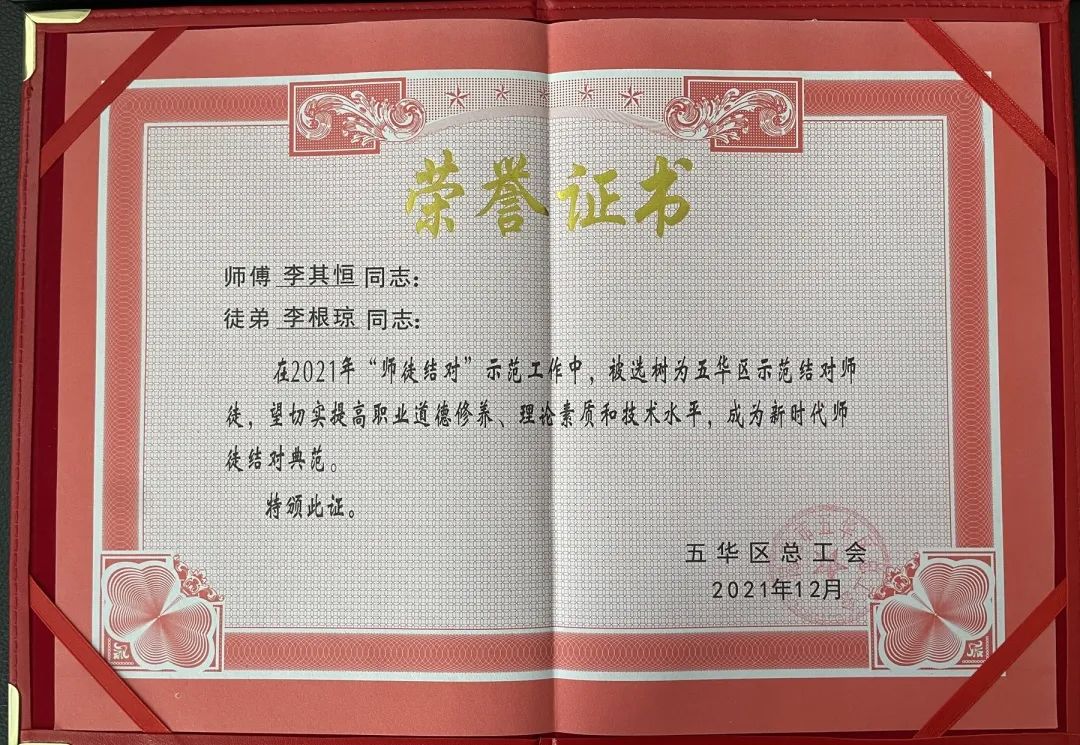 荣誉证书
师傅 李其恒 同志：
徒弟 李根琼 同志：
在2021年“师徒结对”示范工作中，被选树为五华区示范结对师
徒，望切实提高职业道德修养、理论素质和技术水平，成为新时代师
徒结对典范。
特颁此证。
五华区总工会
2021年12月